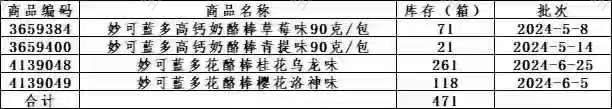 商品编码 商品名称 库存（箱） 批次
3659384 妙可蓝多高钙奶酪棒草莓味90克/包 71 2024-5-8
3659400 妙可蓝多高钙奶酪棒青提味90克/包 21 2024-5-14
4139048 妙可蓝多花酪棒桂花乌龙味 261 2024-6-25
4139049 妙可蓝多花酪棒樱花洛神味 118 2024-6-5
合计 471